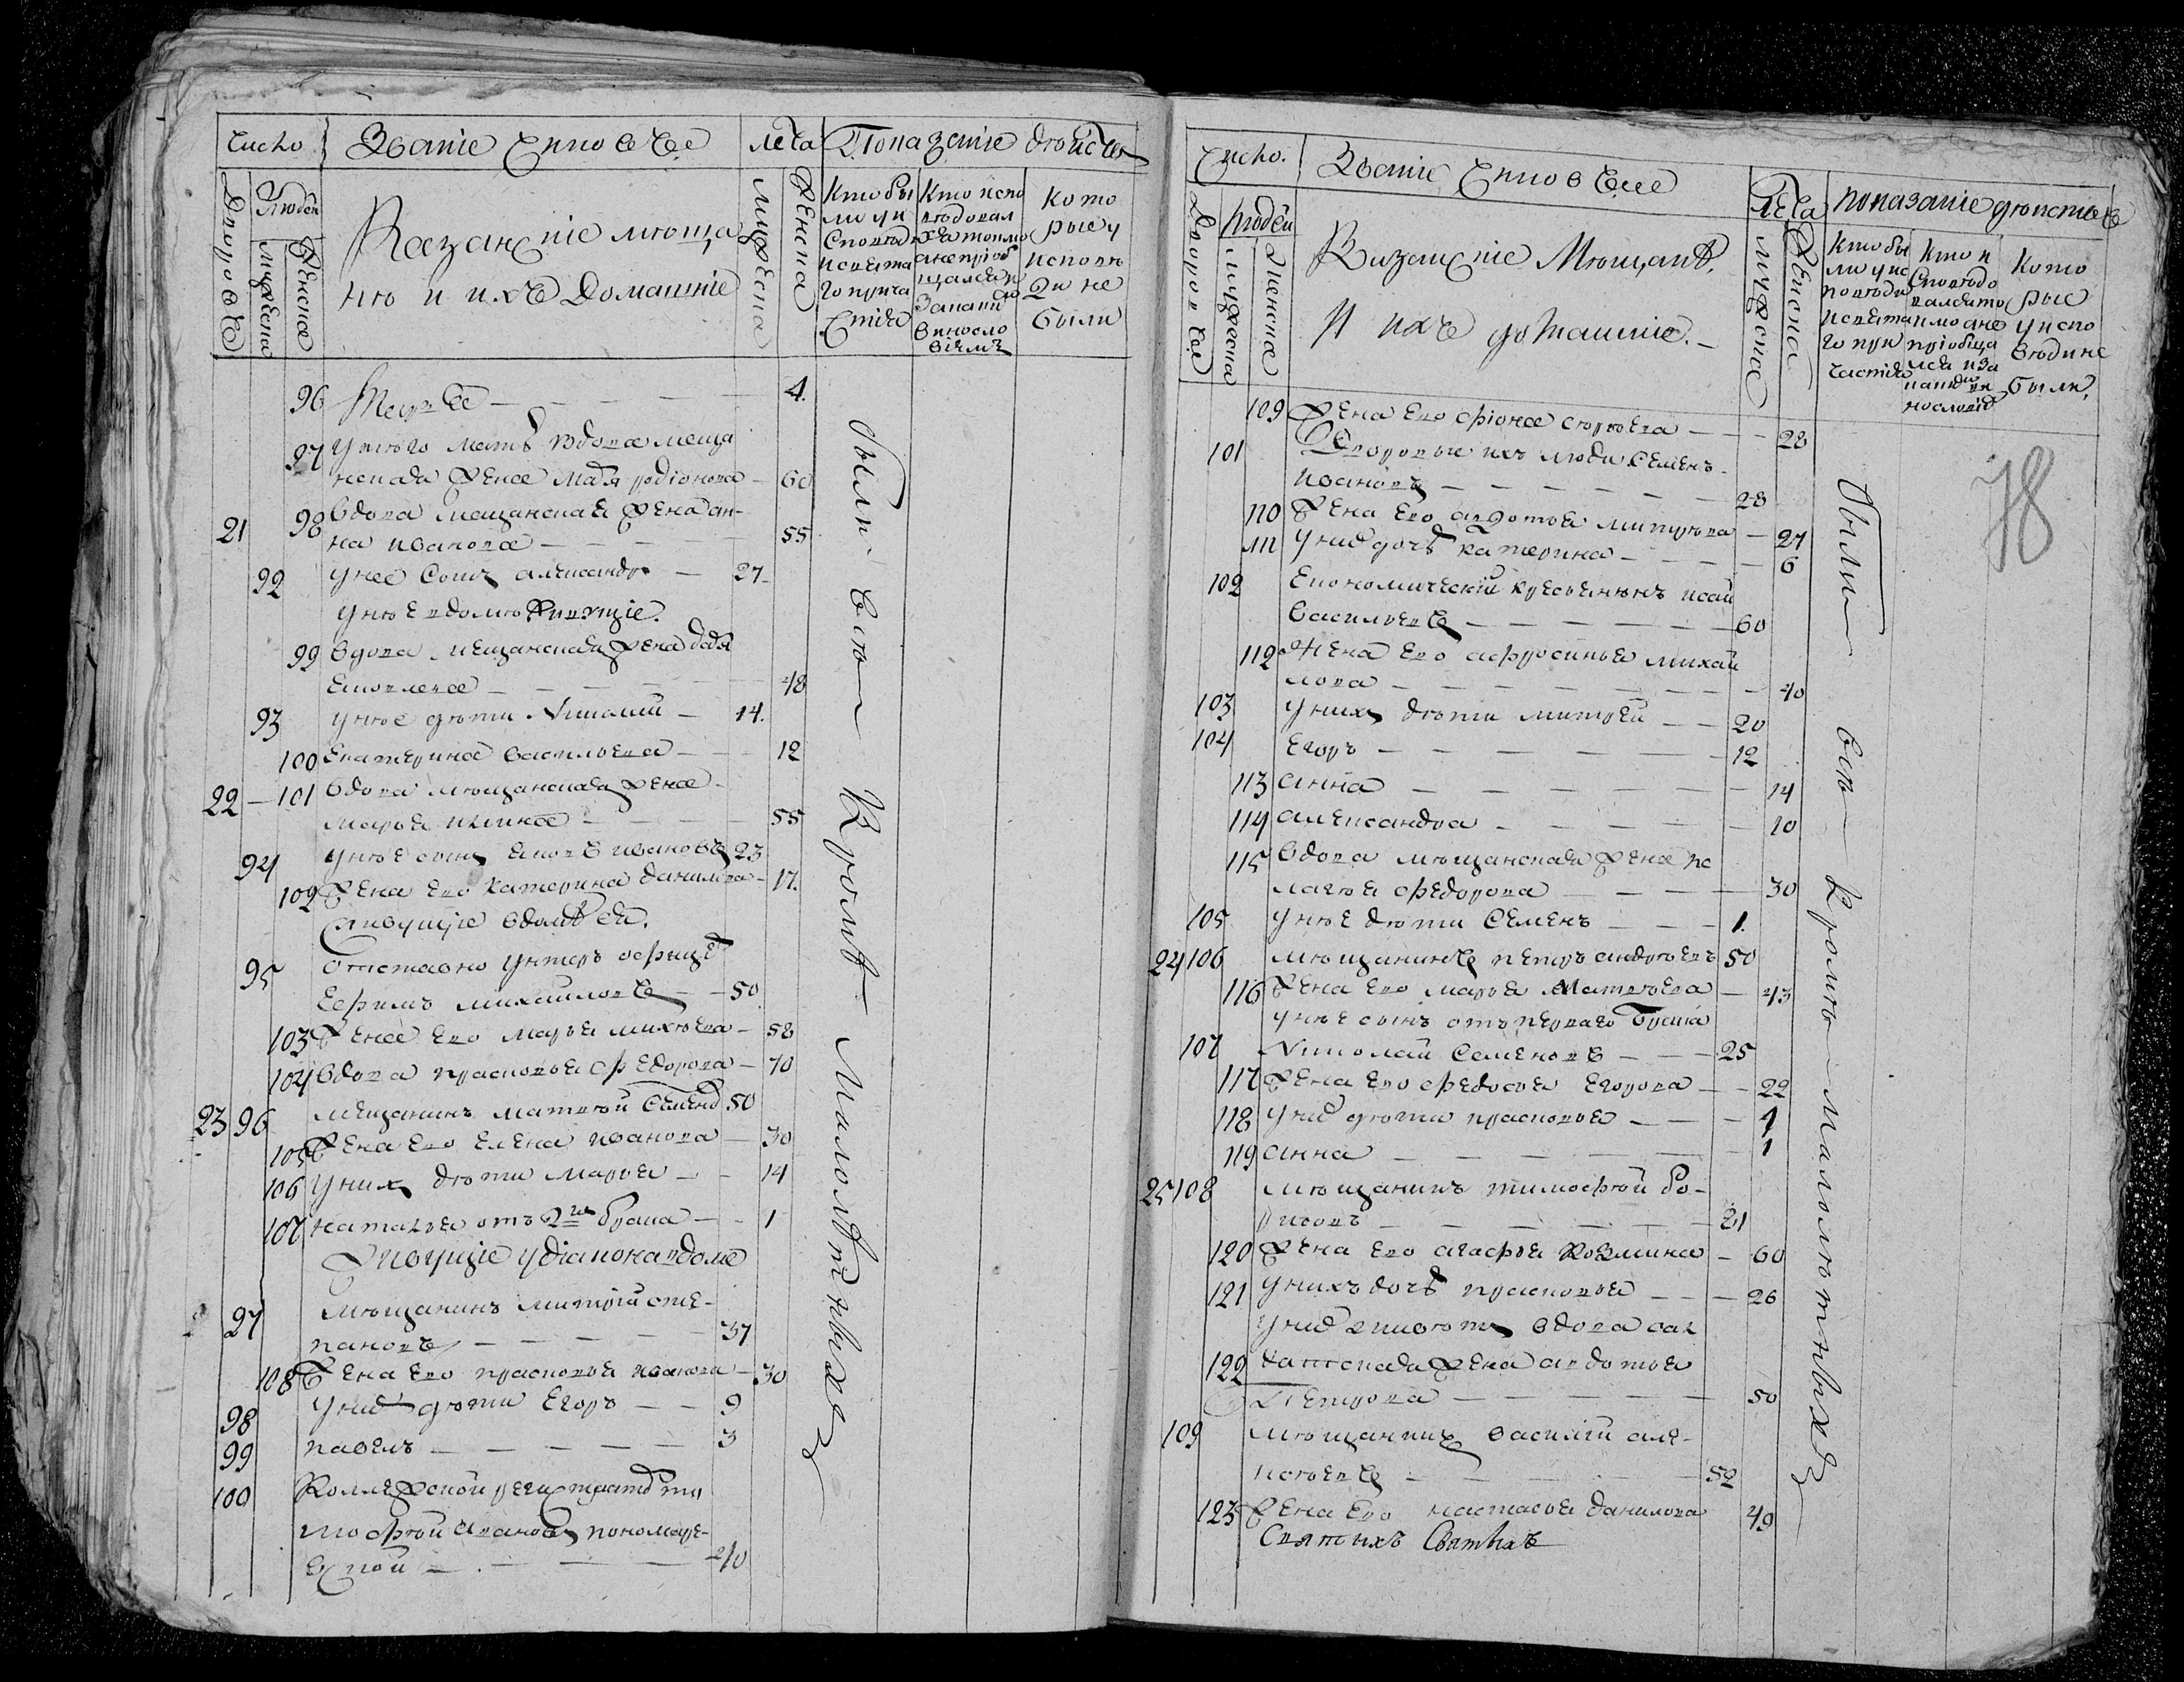 Число
Званіе чиновъ
Лета
Показаніе действъ
Дворовъ
Людей
мужеска
женска
Казанскіе меща
не и ихъ домашніе
мужеска
женска
Кто бы
ли у и
споведи
и свята
го прича
стія
Кто испо
ведовал
ся токмо
а не приоб
щался и
за каким
виносло
віемъ
кото
рые у
исповѣ
ди не
были
96 Марѳа — 4
97 У него мать вдова меща
нская жена родіонова — 60
21 98 Вдова мещанская жена ан-
на иванова — 55
92 У нее сынъ александръ — 27
У нее в доме живущіе
99 Вдова мещанская жена
яковлева — 48
93 У нее дети Николай — 14
100 Екатерина васильева — 12
22 — 101 Вдова мещанская жена
марья ильина — 55
94 У нее сынъ яковъ ивановъ 23
102 Жена его катерина данилова — 17
живущіе в доме ея
95 Отставно унтеръ офицеръ
Ефимъ михайловъ — 50
103 Жена его марья михеева — 58
104 вдова прасковья федорова — 70
23 96 мещанинъ матвей семено 50
105 Жена его елена иванова — 30
106 У них дети марья — 14
107 наталья отъ 2го брака — 1
Живущіе у діакона в доме
97 мещанинъ митрій сте-
пановъ — 37
108 Жена его прасковья иванова — 30
98 У них дети Егоръ — 9
99 павелъ — 3
100 Коллежской регистраторъ ти
мофей ивановъ пономаре-
вской — 40
были все Кроме Малолѣтныхъ
Число.
Званіе чиновъ
Лета
показаніе действъ
Дворовъ
людей
мужеска
женска
Казанскіе Мещане
И ихъ домашніе. —
мужеска
женска
Кто бы
ли у ис
поведи
и свята
го при
частія
Кто и
споведо
вался то
кмо а не
пріобща
лся и за
каким ви
нословіе
Кото
рые
у испо
веди не
были
109 Жена его фіона сергеева — 28
101 Дворовые ихъ люди Семенъ
ивановъ — 28
110 Жена его авдотья митрева — 27
111 У них дочь катерина — 6
102 Економическій крестьянинъ исай
васильевъ — 60
112 Жена его афросинья михай
лова — 40
103 У них дети митрей — 20
104 Егоръ — 12
113 анна — 14
114 александра — 10
115 Вдова мещанская жена пе
лагея федорова — 30
105 У нее дети Семенъ — 1
24 106 мещанинъ петръ андреевъ 50
116 Жена его марья Матвеева — 43
У нее сынъ отъ перваго брака
107 Николай Семеновъ — 25
117 Жена его федосья Егорова — 22
118 У них дети прасковья — 4
119 анна — 1
25 108 мещанинъ тимофей бо-
рисовъ — 21
120 Жена его агафья козмина — 60
121 У нихъ дочь прасковья — 26
У них живетъ вдова сал
122 датская жена авдотья
Петрова — 50
109 мещанинъ василій але-
ксеевъ — 52
123 Жена его настасья данилова 49
Святыхъ Святыхъ
были все Кроме малолетныхъ
78